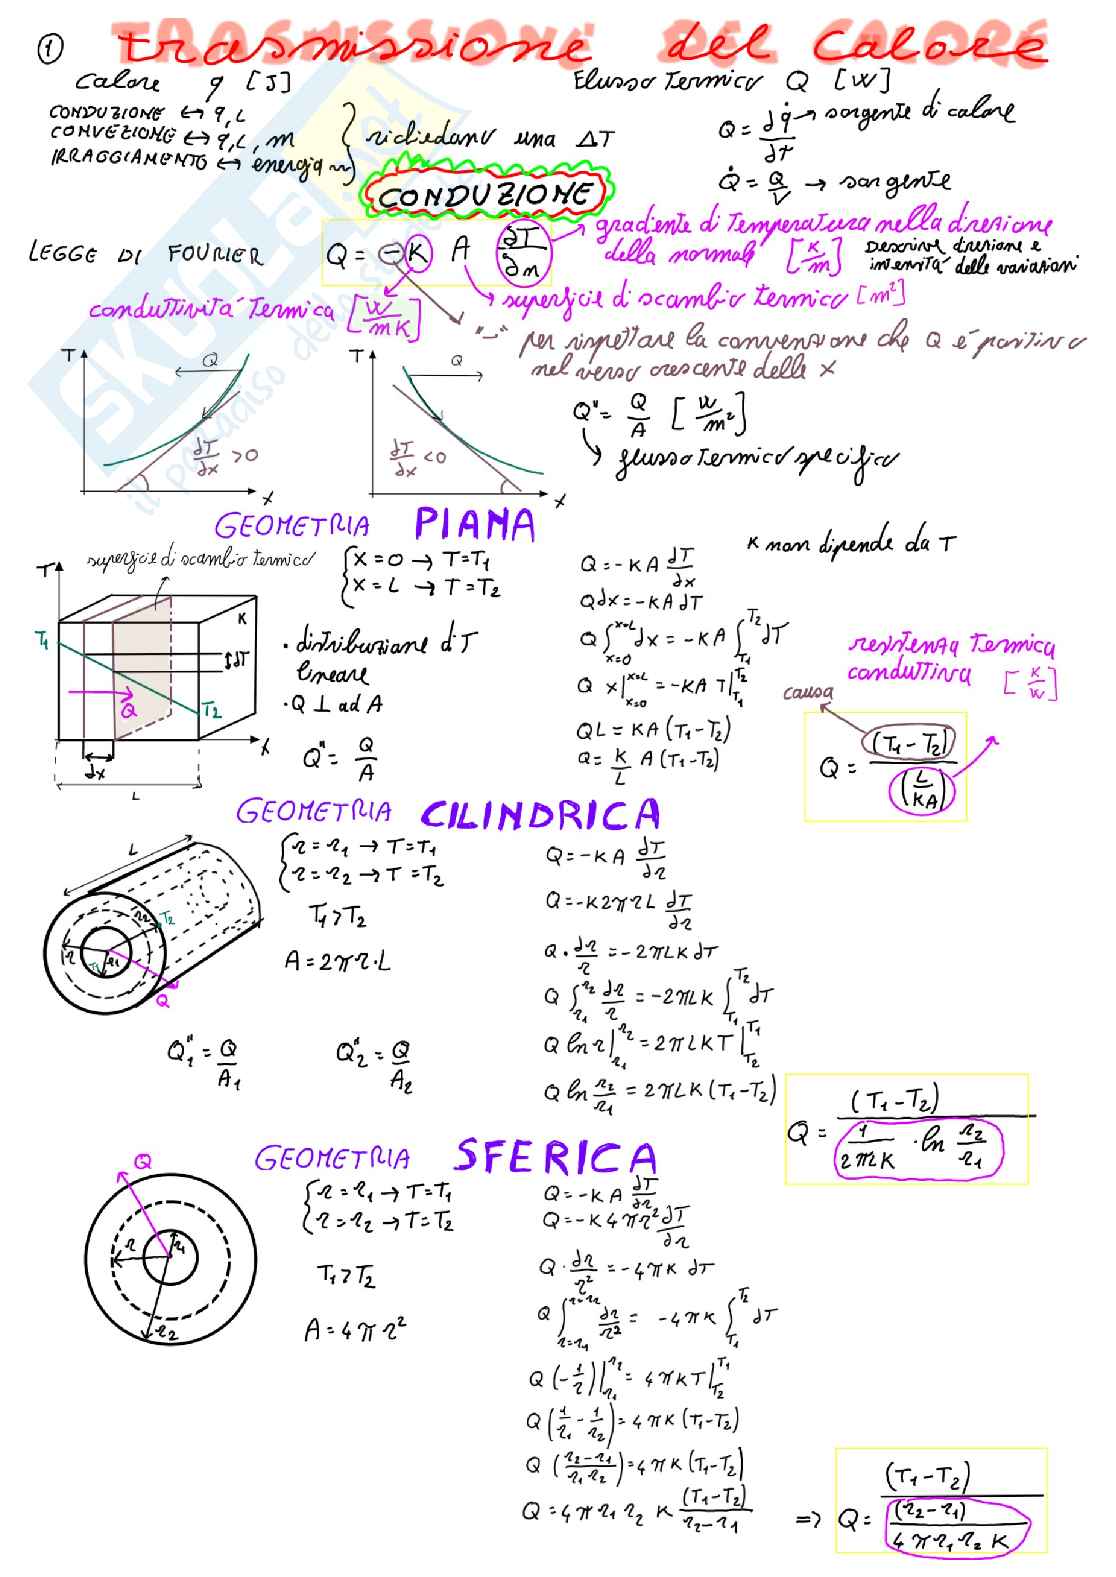 ① TRASMISSIONE DEL CALORE
Calore q [J]
Flusso Termico Q [W]
CONDUZIONE ↔ q, L
CONVEZIONE ↔ q, L, m
IRRAGGIAMENTO ↔ energia
richiedono una ΔT
Q = dq̇/dτ → sorgente di calore
Q̇ = Q/V → sorgente
CONDUZIONE
LEGGE DI FOURIER
Q = -K A ∂T/∂n
gradiente di Temperatura nella direzione
della normale [K/m]
Descrive direzione e
intensità delle variazioni
conduttività Termica [W/mK]
superficie di scambio termico [m²]
"-" per rispettare la convenzione che Q è positivo
nel verso crescente delle x
T Q dT/dx > 0 x
T Q dT/dx < 0 x
Q" = Q/A [W/m²]
flusso Termico specifico
GEOMETRIA PIANA
superficie di scambio termico
T T1 K dT Q T2 x dx L
{x = 0 → T = T1
x = L → T = T2
· distribuzione di T
lineare
· Q ⊥ ad A
Q" = Q/A
K non dipende da T
Q = -KA dT/dx
Q dx = -KA dT
Q ∫x=0 x=L dx = -KA ∫T1 T2 dT
Q x|x=0 x=L = -KA T|T1 T2
QL = KA (T1-T2)
Q = K/L A (T1-T2)
resistenza Termica
conduttiva [K/W]
causa
Q = (T1-T2)/(L/KA)
GEOMETRIA CILINDRICA
L r2 T2 r T1 r1 Q
{r = r1 → T = T1
r = r2 → T = T2
T1 > T2
A = 2πr·L
Q"1 = Q/A1
Q"2 = Q/A2
Q = -KA dT/dr
Q = -K2πrL dT/dr
Q · dr/r = -2πLK dT
Q ∫r1 r2 dr/r = -2πLK ∫T1 T2 dT
Q ln r|r1 r2 = 2πLKT|T2 T1
Q ln r2/r1 = 2πLK (T1-T2)
Q = (T1-T2)/(1/2πLK · ln r2/r1)
GEOMETRIA SFERICA
Q r r1 r2
{r = r1 → T = T1
r = r2 → T = T2
T1 > T2
A = 4πr²
Q = -KA dT/dr
Q = -K4πr² dT/dr
Q · dr/r² = -4πK dT
Q ∫r=r1 r=r2 dr/r² = -4πK ∫T1 T2 dT
Q (-1/r)|r1 r2 = 4πKT|T2 T1
Q (1/r1 - 1/r2) = 4πK (T1-T2)
Q ((r2-r1)/r1r2) = 4πK (T1-T2)
Q = 4πr1r2 K (T1-T2)/(r2-r1)
⇒ Q = (T1-T2)/((r2-r1)/4πr1r2K)